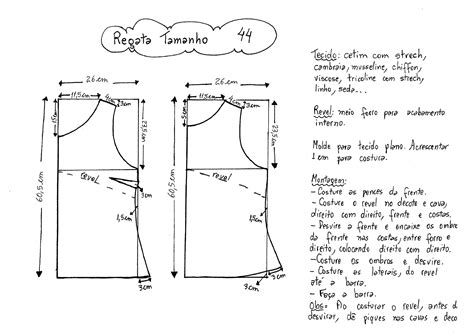 Regata Tamanho 44
26 cm
11,5cm
4cm
3cm
15cm
23,5cm
60,5cm
revel
3cm
1,5cm
3cm
26 cm
11,5cm
4cm
3cm
23,5cm
60,5cm
revel
1,5cm
3cm
3cm
Tecido: cetim com strech,
cambraia, musseline, chiffon,
viscose, tricoline com strech,
linho, seda...
Revel: meio forro para acabamento
interno.
Molde para tecido plano. Acrescentar
1 cm para costura.
Montagem:
- Costure as pences da frente.
- Costure o revel no decote e cava,
direito com direito, frente e costas.
- Desvire a frente e encaixe os ombros
da frente nas costas, entre forro e
direito, colocando direito com direito.
- Costure os ombros e desvire.
- Costure as laterais, do revel
até a barra.
- Faça a barra.
Obs= Ao costurar o revel, antes d
desvirar, dê piques nas cavas e deco